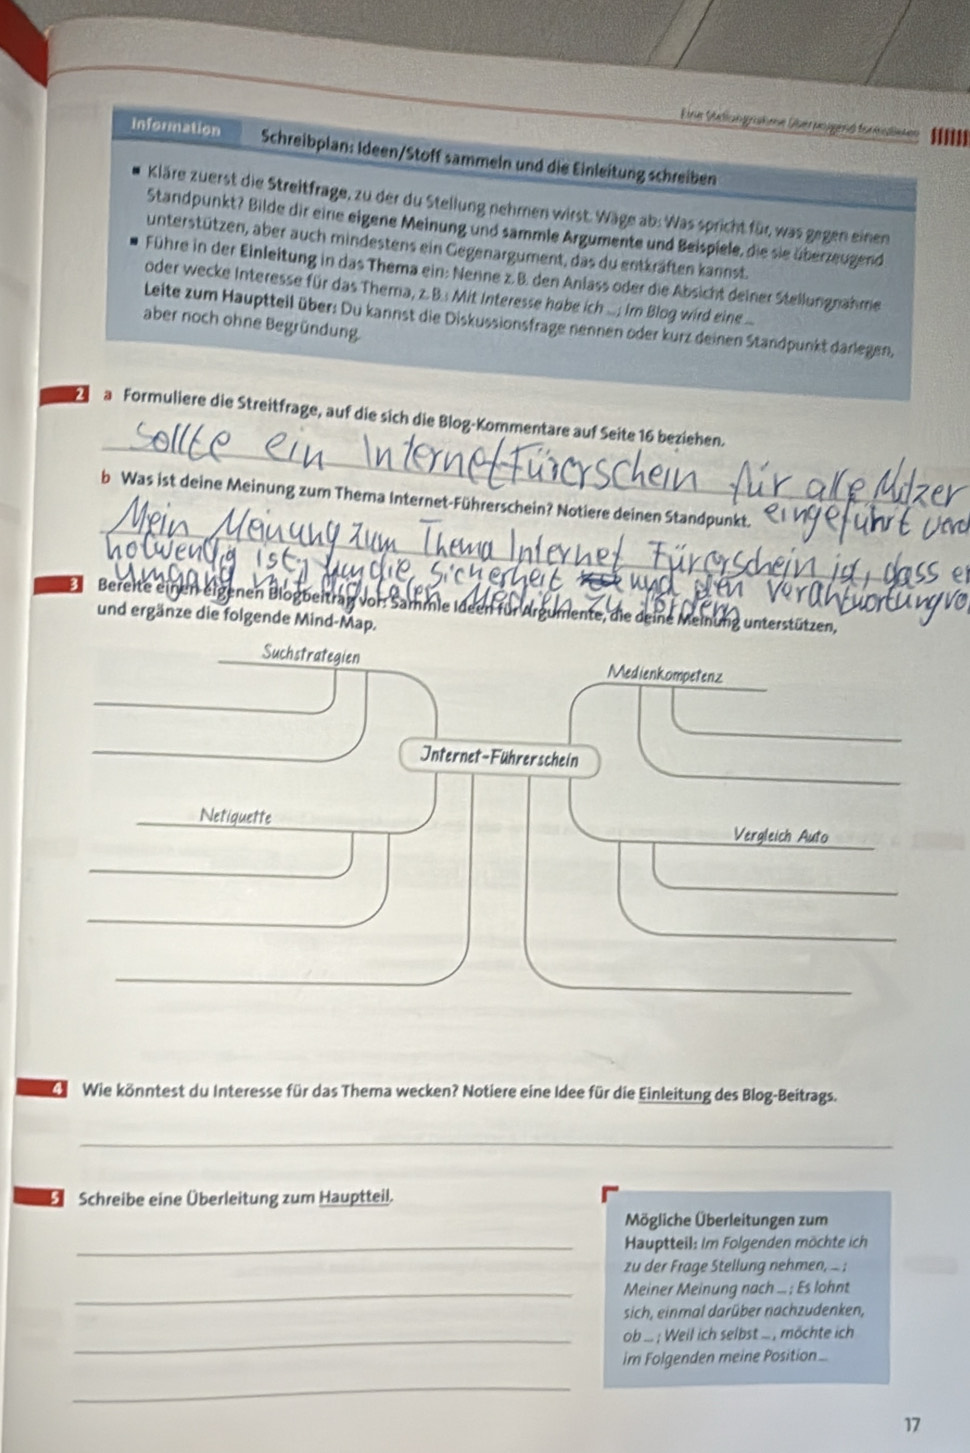 Eine Stellungnahme überzeugend formulieren
Information Schreibplan: Ideen/Stoff sammeln und die Einleitung schreiben
■ Kläre zuerst die Streitfrage, zu der du Stellung nehmen wirst. Wäge ab: Was spricht für, was gegen einen
Standpunkt? Bilde dir eine eigene Meinung und sammle Argumente und Beispiele, die sie überzeugend
unterstützen, aber auch mindestens ein Gegenargument, das du entkräften kannst.
■ Führe in der Einleitung in das Thema ein: Nenne z. B. den Anlass oder die Absicht deiner Stellungnahme
oder wecke Interesse für das Thema, z. B.: Mit Interesse habe ich ...; Im Blog wird eine ...
Leite zum Hauptteil über: Du kannst die Diskussionsfrage nennen oder kurz deinen Standpunkt darlegen,
aber noch ohne Begründung.
2 a Formuliere die Streitfrage, auf die sich die Blog-Kommentare auf Seite 16 beziehen.
Sollte ein Internet Fürerschein für alle Nutzer
eingeführt werd
b Was ist deine Meinung zum Thema Internet-Führerschein? Notiere deinen Standpunkt.
Mein Meinung zum Thema Internet Fürerschein ist, dass er
notwendig ist, um die sicherheit und den Verantwortungvo
umgang mit digitalen Medien zu fördern
3 Bereite einen eigenen Blogbeitrag vor: Sammle Ideen für Argumente, die deine Meinung unterstützen,
und ergänze die folgende Mind-Map.
Suchstrategien
Medienkompetenz
Internet-Führerschein
Netiquette
Vergleich Auto
4 Wie könntest du Interesse für das Thema wecken? Notiere eine Idee für die Einleitung des Blog-Beitrags.
5 Schreibe eine Überleitung zum Hauptteil.
Mögliche Überleitungen zum
Hauptteil: Im Folgenden möchte ich
zu der Frage Stellung nehmen, ... ;
Meiner Meinung nach ... ; Es lohnt
sich, einmal darüber nachzudenken,
ob ... ; Weil ich selbst ... , möchte ich
im Folgenden meine Position ...
17